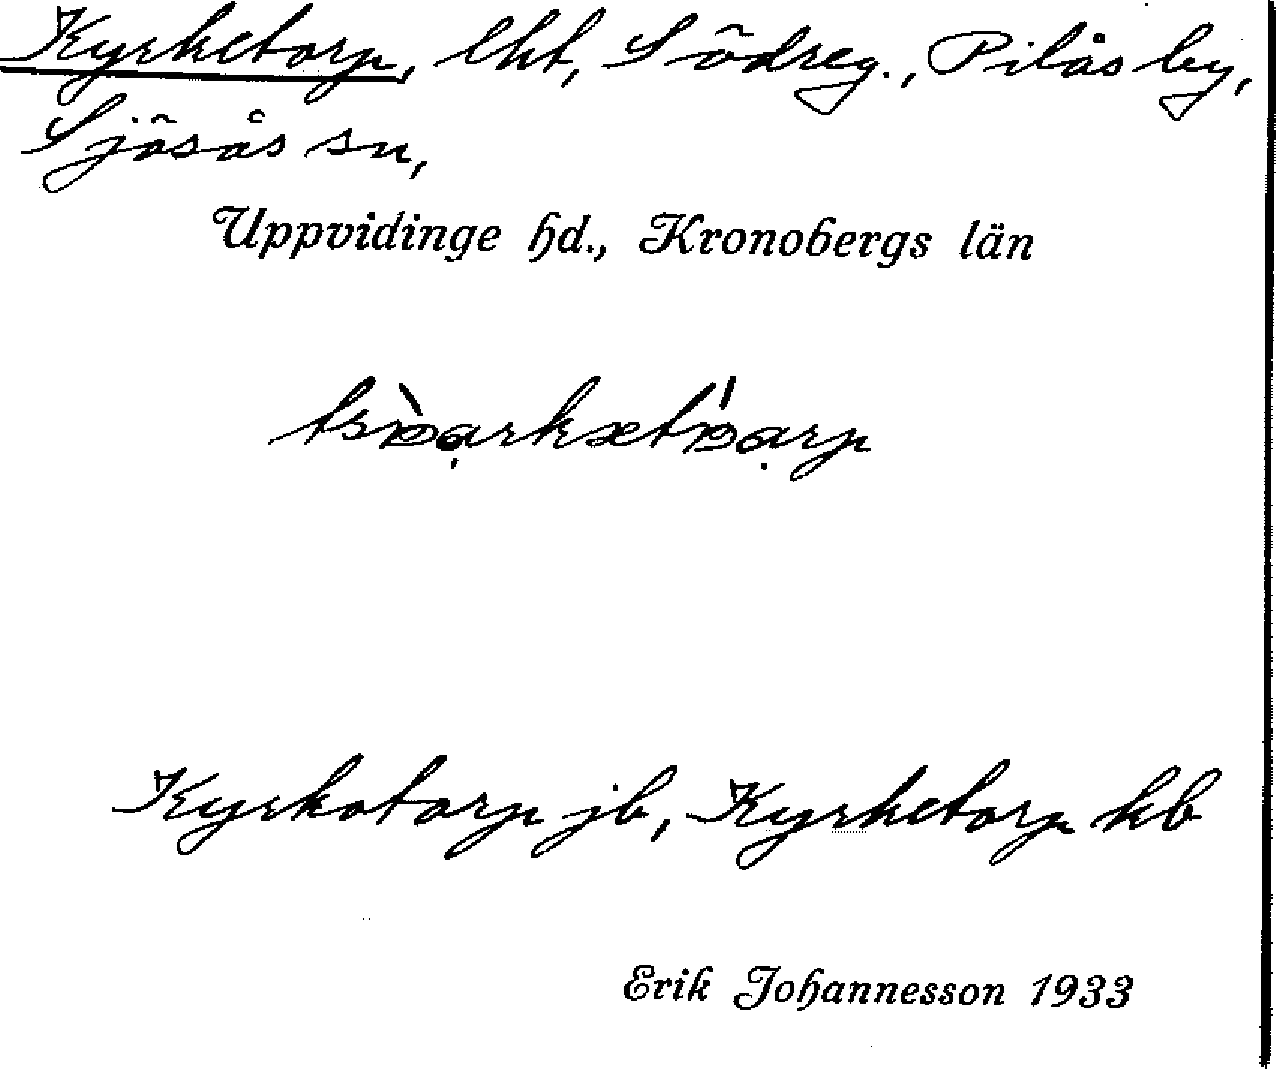 Kyrketorp, lht, Södreg., Pilås by,
Sjösås sn,
Uppvidinge hd., Kronobergs län
Kyrkotorp jb, Kyrketorp kb
Erik Johannesson 1933